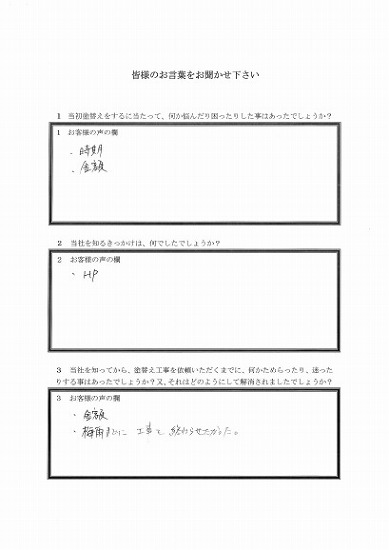 皆様のお言葉をお聞かせ下さい
1 当初塗替えをするに当たって、何か悩んだり困ったりした事はあったでしょうか？
1 お客様の声の欄
・時期
・金額
2 当社を知るきっかけは、何でしたでしょうか？
2 お客様の声の欄
・HP
3 当社を知ってから、塗替え工事を依頼いただくまでに、何かためらったり、迷った
りする事はあったでしょうか？又、それはどのようにして解消されましたでしょうか？
3 お客様の声の欄
・金額
・梅雨までに 工事を 終わらせたかった。